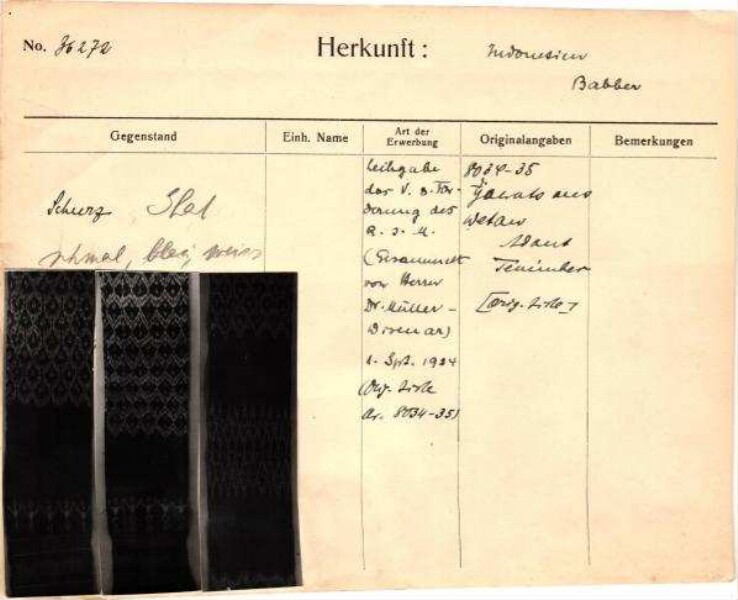 No. 36272
Herkunft: Indonesien
Babber
Gegenstand
Einh. Name
Art der Erwerbung
Originalangaben
Bemerkungen
Schurz
schmal, blau, weiss
Leihgabe
des V. z. För-
derung des
R. J. M.
(Gesammelt
von Herrn
Dr. Müller-
Wismar)
1. Spt. 1924
(Orig. Liste
Nr. 8034-35)
8034-35
Tjawats aus
Wetan
Tenimber
[Orig. Liste]